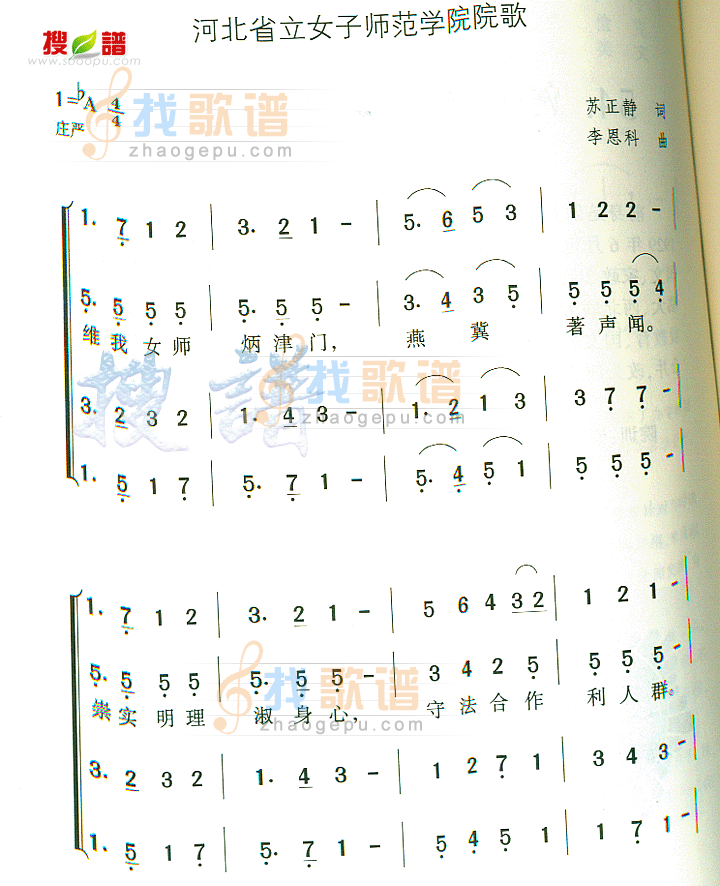 搜譜
www.sooopu.com
河北省立女子师范学院院歌
1=♭A 4/4
庄严
苏正静 词
李恩科 曲
找歌谱
zhaogepu.com
1. 7 1 2 | 3. 2 1 - | 5. 6 5 3 | 1 2 2 - |
5. 5 5 5 | 5. 5 5 - | 3. 4 3 5 | 5 5 5 4 |
维我女师 炳津门， 燕 冀 著声闻。
搜譜
找歌谱
zhaogepu.com
3. 2 3 2 | 1. 4 3 - | 1. 2 1 3 | 3 7 7 - |
1. 5 1 7 | 5. 7 1 - | 5. 4 5 5 | 5 5 5 - |
1. 7 1 2 | 3. 2 1 - | 5 6 4 3 2 | 1 2 1 - |
5. 5 5 5 | 5. 5 5 - | 3 4 2 5 | 5 5 5 - |
崇实明理 淑身心， 守法合作 利人群。
找歌谱
zhaogepu.com
3. 2 3 2 | 1. 4 3 - | 1 2 7 1 | 3 4 3 |
1. 5 1 7 | 5. 7 1 - | 5 4 5 1 | 1 7 1 - |
1929年6月